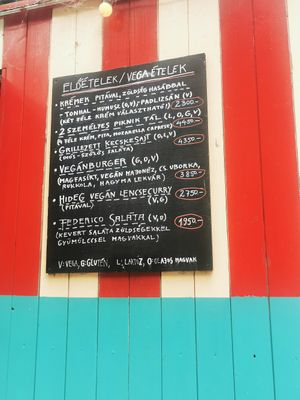 ELŐÉTELEK/VEGA ÉTELEK
• KRÉMEK PITÁVAL, ZÖLDSÉG HASÁBBAL
- TONHAL - HUMUSZ (O,V) / PADLIZSÁN (V)
(KÉT FÉLE KRÉM VÁLASZTHATÓ!) 2300.-
• 2 SZEMÉLYES PIKNIK TÁL (L,O,G,V) 4450.-
(4 FÉLE KRÉM, PITA, MOZZARELLA CAPRESE)
• GRILLEZETT KECSKESAJT (O,L,V) 4350.-
(DIÓS - SZŐLŐS SALÁTA)
• VEGÁNBURGER (G,O,V)
(MAGFASÍRT, VEGÁN MAJONÉZ, CS. UBORKA,
RUKKOLA, HAGYMA LEKVÁR) 3850.-
• HIDEG VEGÁN LENCSECURRY (V,G) 2750.-
(PITÁVAL)
• FEDERICO SALÁTA (V,O) 1950.-
(KEVERT SALÁTA ZÖLDSÉGEKKEL
GYÜMÖLCCSEL MAGVAKKAL)
V: VEGA, G: GLUTÉN, L: LAKTÓZ, O: OLAJOS MAGVAK